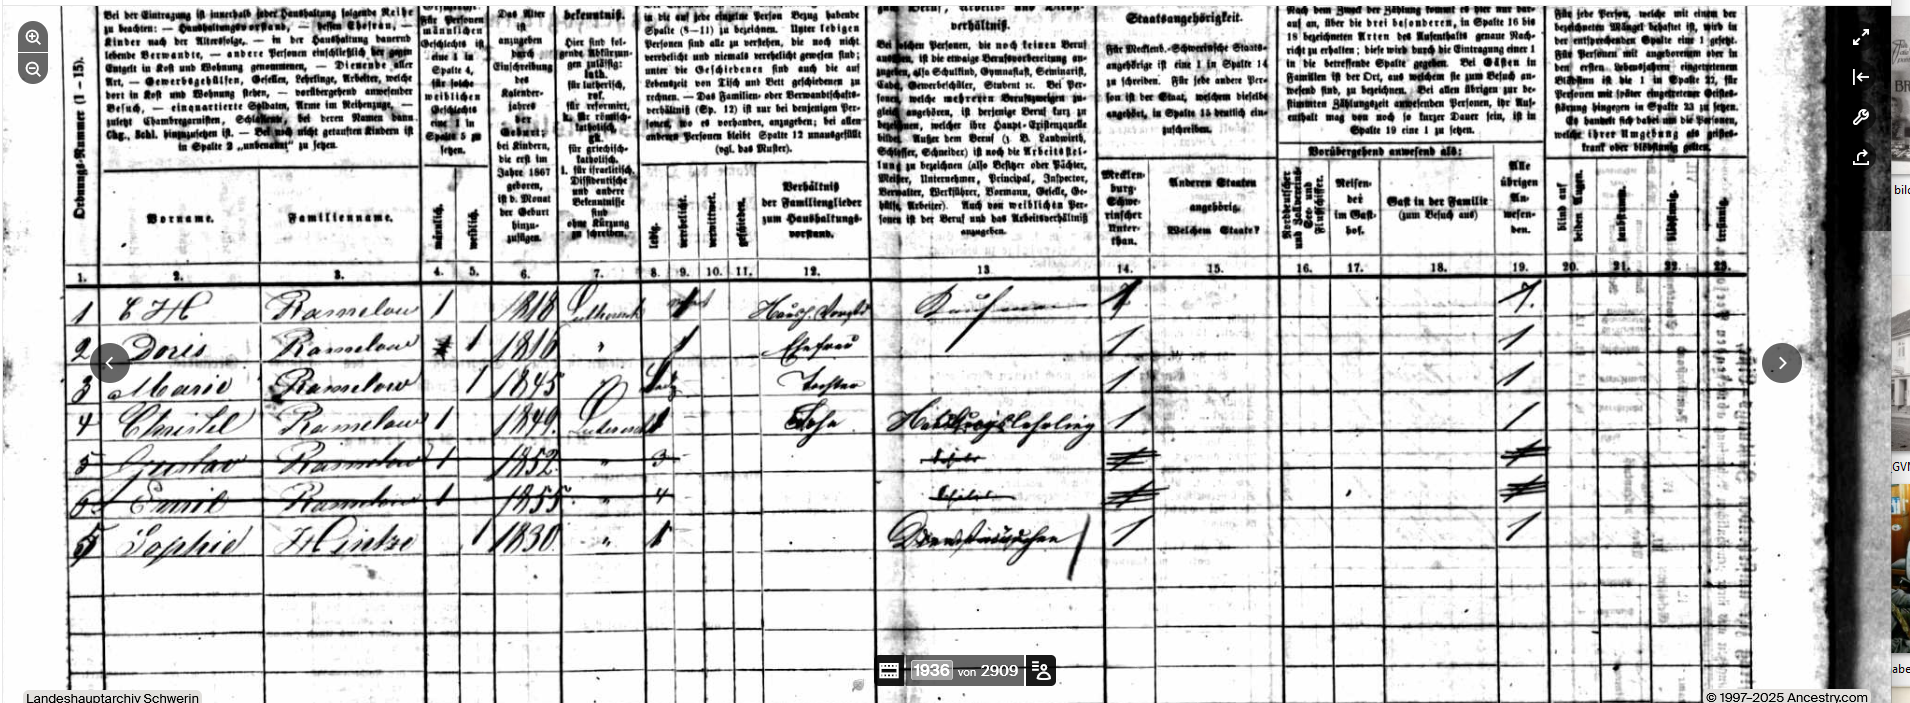 Bei der Eintragung ist innerhalb jeder Haushaltung folgende Reihe
zu beachten: — Haushaltungsvorstand, — dessen Ehefrau, —
Kinder nach der Altersfolge, — in der Haushaltung dauernd
lebende Verwandte, — andere Personen einschließlich der gegen
Entgelt in Kost und Wohnung genommenen, — Dienende aller
Art, — Gewerbsgehülfen, Gesellen, Lehrlinge, Arbeiter, welche
dort in Kost und Wohnung stehen, — vorübergehend anwesender
Besuch, — einquartierte Soldaten, Arme im Reihenzuge, —
zuletzt Chambregarnisten, Schlafleute, bei deren Namen dann
Chg. Schl. hinzuzusetzen ist. — Bei noch nicht getauften Kindern ist
in Spalte 2 „unbenannt" zu setzen.
Ordnungs-Nummer (1–15).
Vorname.
Familienname.
Für Personen
männlichen
Geschlechts ist
eine 1 in
Spalte 4,
für solche
weiblichen
Geschlechts
eine 1 in
Spalte 5 zu
setzen.
männlich.
weiblich.
Das Alter
ist
anzugeben
durch
Einschreibung
des
Kalender-
jahres
der
Geburt;
bei Kindern,
die erst im
Jahre 1867
geboren,
ist d. Monat
der Geburt
hinzu-
zufügen.
bekenntniß.
Hier sind fol-
gende Abkürzun-
gen zulässig:
luth.
für lutherisch,
ref.
für reformirt,
k. für römisch-
katholisch,
gk.
für griechisch-
katholisch.
i. für israelitisch.
Dissidentische
und andere
Bekenntnisse
sind
ohne Kürzung
zu schreiben.
in die auf jede einzelne Person Bezug habende
Spalte (8—11) zu bezeichnen. Unter ledigen
Personen sind alle zu verstehen, die noch nicht
verehelicht und niemals verehelicht gewesen sind;
unter die Geschiedenen sind auch die auf
Lebenszeit von Tisch und Bett geschiedenen zu
rechnen. — Das Familien- oder Verwandtschafts-
verhältniß (Sp. 12) ist nur bei denjenigen Per-
sonen, wo es vorhanden, anzugeben; bei allen
anderen Personen bleibt Spalte 12 unausgefüllt
(vgl. das Muster).
ledig.
verehelicht.
verwittwet.
geschieden.
Verhältniß
der Familienglieder
zum Haushaltungs-
vorstand.
verhältniß.
Bei solchen Personen, die noch keinen Beruf
ausüben, ist die etwaige Berufsvorbereitung an-
zugeben, also Schulkind, Gymnasiast, Seminarist,
Cadet, Gewerbeschüler, Student ꝛc. Bei Per-
sonen, welche mehreren Berufszweigen zu-
gleich angehören, ist derjenige Beruf kurz zu
bezeichnen, welcher ihre Haupt-Existenzquelle
bildet. Außer dem Beruf (z. B. Landwirth,
Schlosser, Schneider) ist noch die Arbeitsstel-
lung zu bezeichnen (also Besitzer oder Pächter,
Meister, Unternehmer, Principal, Inspector,
Verwalter, Werkführer, Vormann, Geselle, Ge-
hülfe, Arbeiter). Auch von weiblichen Per-
sonen ist der Beruf und das Arbeitsverhältniß
anzugeben.
Staatsangehörigkeit.
Für Mecklenb.-Schwerinsche Staats-
angehörige ist eine 1 in Spalte 14
zu schreiben. Für jede andere Per-
son ist der Staat, welchem dieselbe
angehört, in Spalte 15 deutlich ein-
zuschreiben.
Mecklen-
burg-
Schwe-
rinscher
Unter-
than.
Anderen Staaten
angehörig.
Welchem Staate?
Nach dem Zweck der Zählung kommt es hier nur dar-
auf an, über die drei besonderen, in Spalte 16 bis
18 bezeichneten Arten des Aufenthalts genaue Nach-
richt zu erhalten; diese wird durch die Eintragung einer 1
in die betreffende Spalte gegeben. Bei Gästen in
Familien ist der Ort, aus welchem sie zum Besuch an-
wesend sind, zu bezeichnen. Bei allen übrigen zur be-
stimmten Zählungszeit anwesenden Personen, ihr Auf-
enthalt mag von noch so kurzer Dauer sein, ist in
Spalte 19 eine 1 zu setzen.
Vorübergehend anwesend als:
Norddeutscher
und Zollvereins-
See- und
Flußschiffer.
Reisen-
der
im Gast-
hof.
Gast in der Familie
(zum Besuch aus)
Alle
übrigen
An-
wesen-
den.
Für jede Person, welche mit einem der
bezeichneten Mängel behaftet ist, wird in
der entsprechenden Spalte eine 1 gesetzt.
Für Personen mit angeborenem oder in
den ersten Lebensjahren eingetretenem
Blödsinn ist die 1 in Spalte 22, für
Personen mit später eingetretener Geistes-
störung hingegen in Spalte 23 zu setzen.
Es handelt sich dabei um die Personen,
welche ihrer Umgebung als geistes-
krank oder blödsinnig gelten.
blind auf
beiden Augen.
taubstumm.
blödsinnig.
irrsinnig.
1. 2. 3. 4. 5. 6. 7. 8. 9. 10. 11. 12. 13. 14. 15. 16. 17. 18. 19. 20. 21. 22. 23.
1 C H Ramelow 1 1818 Lutherisch 1 Haush. Vorstd Kaufmann 1 1.
2 Doris Ramelow 1 1816 " 1 Ehefrau 1 1
3 Marie Ramelow 1 1845 Tochter 1 1
4 Christel Ramelow 1 1849 Lutherisch 1 Sohn Handlungslehrling 1 1
5 Gustav Ramelow 1 1852 " 3 Schüler 1 1
6 Emil Ramelow 1 1855 " 4 Schüler 1 1
5 Sophie Hintze 1 1830 " 1 Dienstmädchen 1 1
1936 von 2909
Landeshauptarchiv Schwerin
© 1997–2025 Ancestry.com